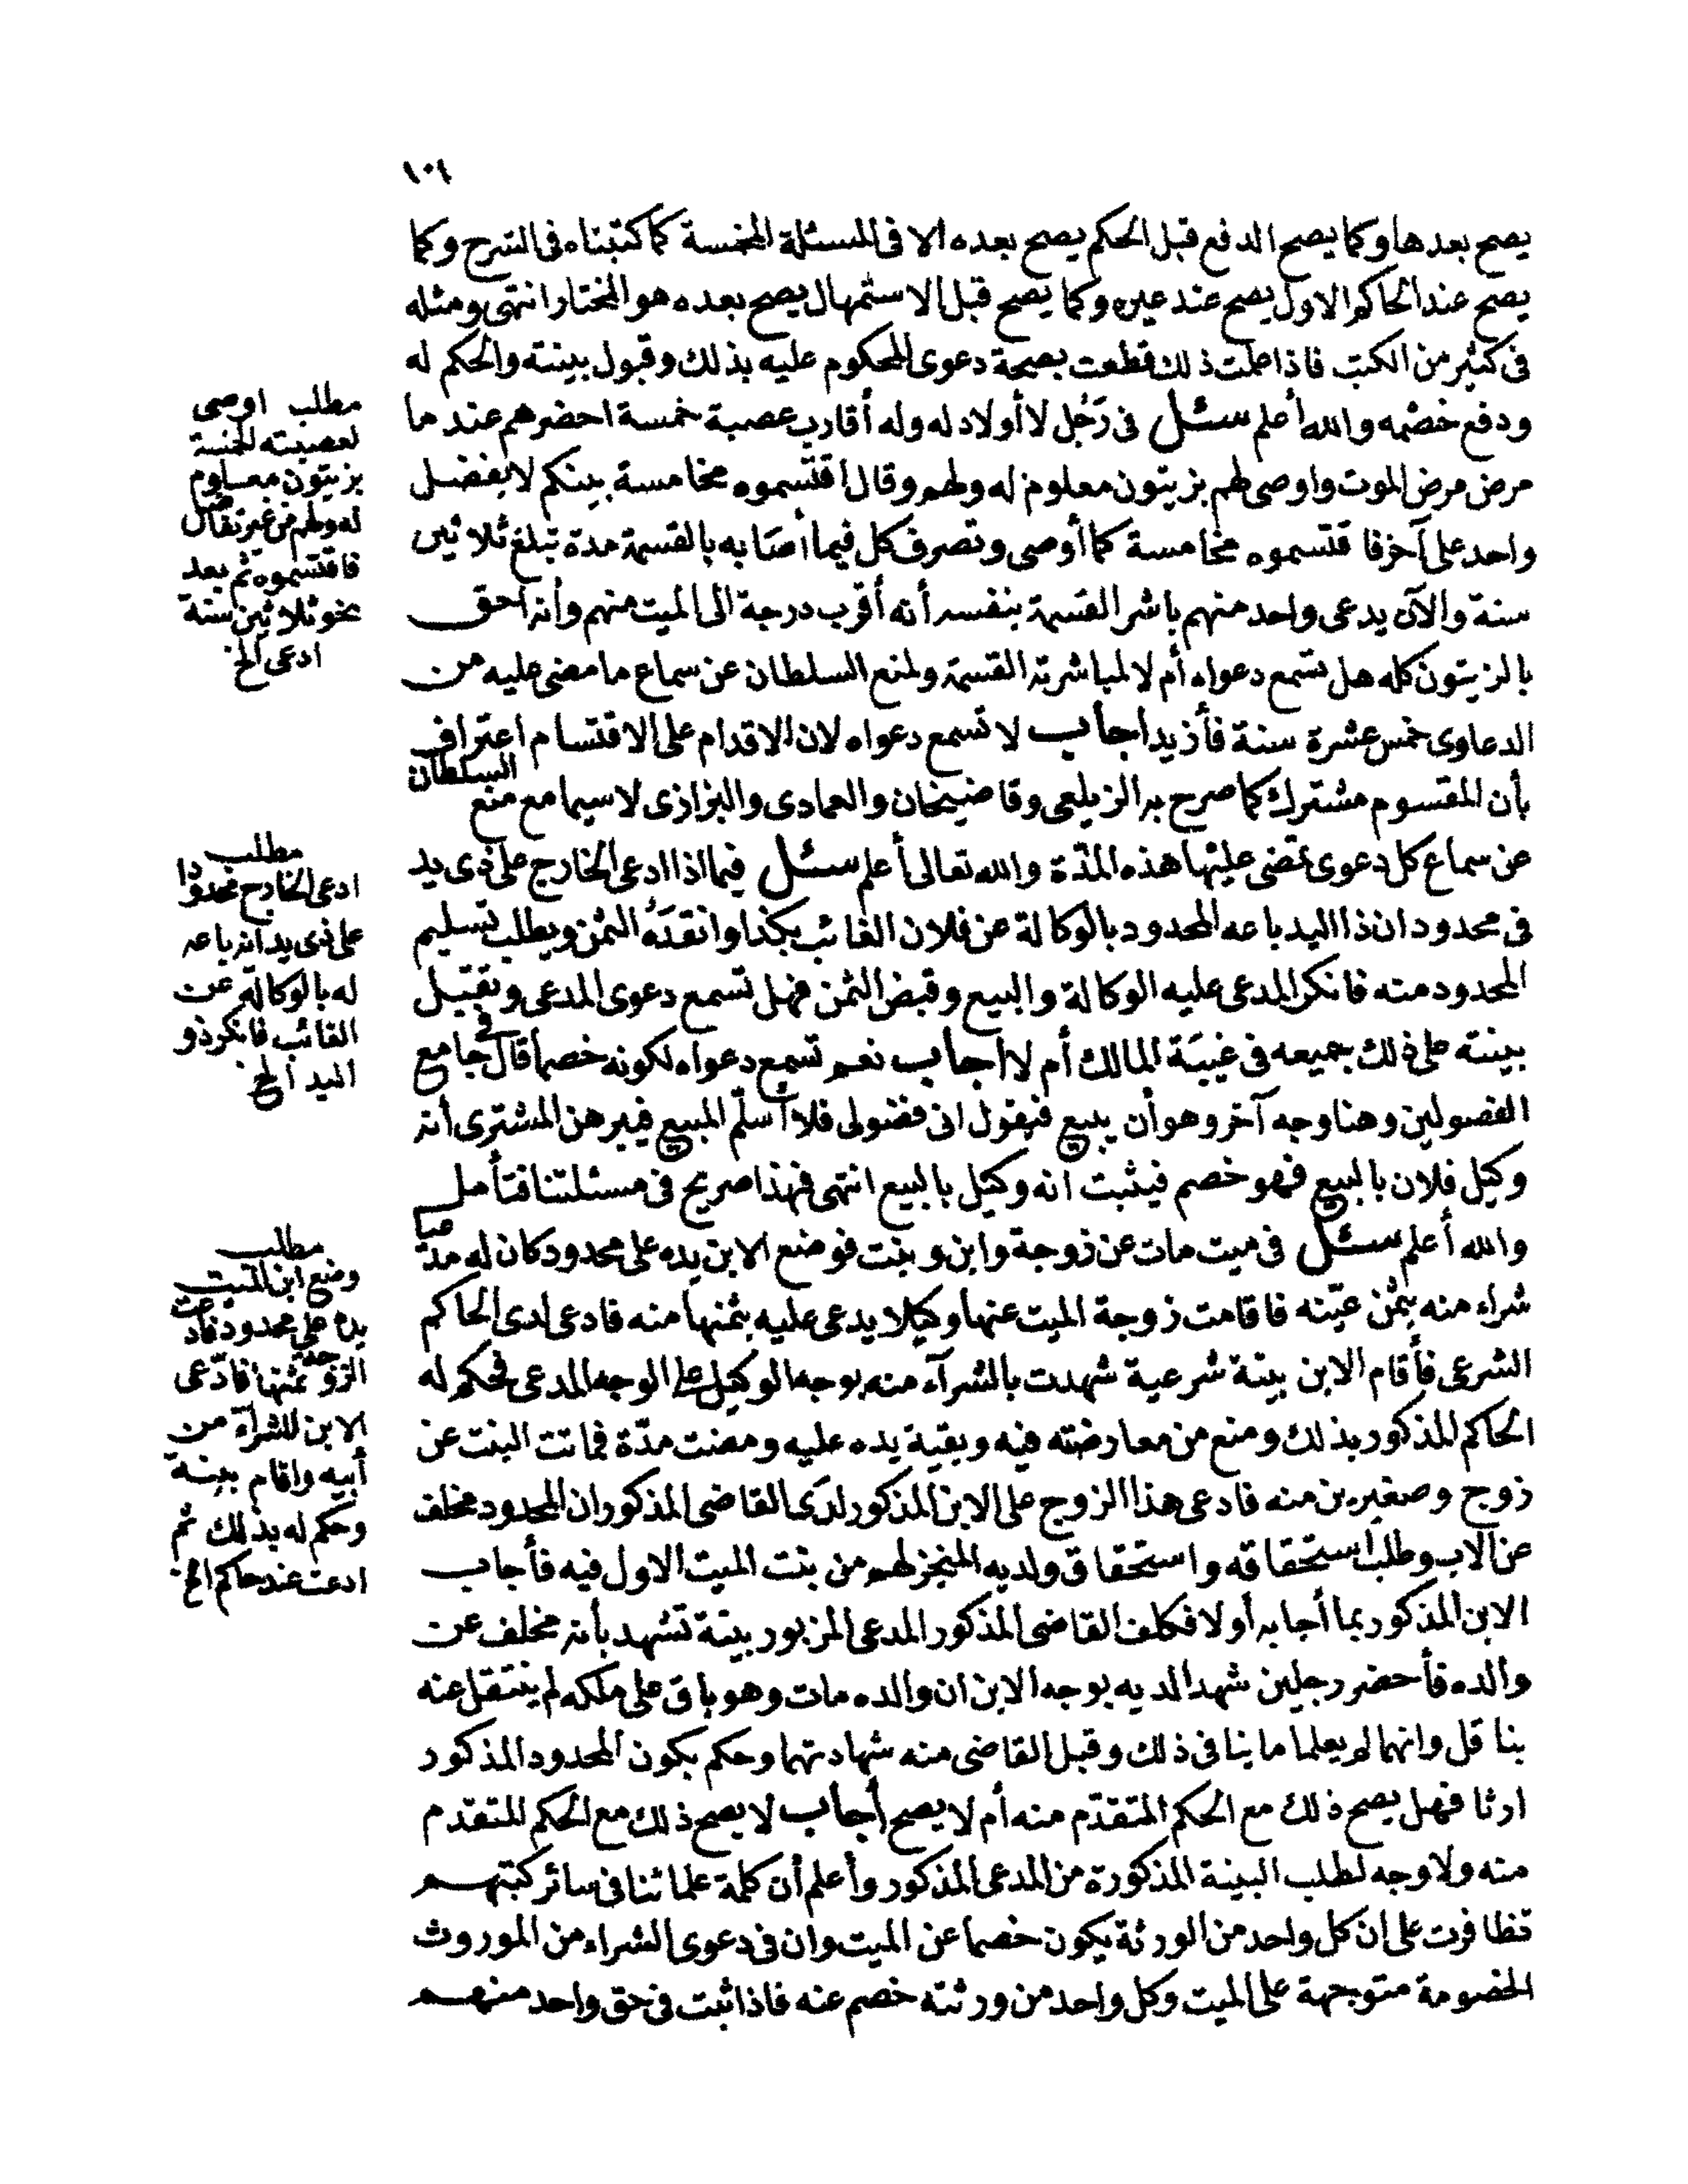 ١٠٤
يصح بعدها وكما يصح الدفع قبل الحكم يصح بعده الا فى المسئلة المخمسة كما كتبناه فى الشرح وكما
يصح عند الحاكم الاول يصح عند غيره وكما يصح قبل الاستمهال يصح بعده هو المختار انتهى ومثله
فى كثير من الكتب فاذا علمت ذلك قطعت بصحة دعوى المحكوم عليه بذلك وقبول بينته والحكم له
ودفع خصمه والله أعلم سئل فى رَجُل لا أولاد له وله أقارب عصبة خمسة احضرهم عند ما
مرض مرض الموت واوصى لهم بزيتون معلوم له ولهم وقال اقتسموه مخامسة بينكم لا يفضل
واحد على آخر فاقتسموه مخامسة كما أوصى وتصرف كل فيما أصَابه بالقسمة مدة تبلغ ثلاثين
سنة والآن يدعى واحد منهم باشر القسمة بنفسه أنه أقرب درجة الى الميت منهم وأنه احق
بالزيتون كله هل تسمع دعواه أم لا لمباشرته القسمة ولمنع السلطان عن سماع ما مضى عليه من
الدعاوى خمس عشرة سنة فأزيد أجاب لا تسمع دعواه لان الاقدام على الاقتسام اعتراف
بأن المقسوم مشترك كما صرح به الزيلعى وقاضيخان والعمادى والبزازى لا سيما مع منع السلطان
عن سماع كل دعوى تمضى عليها هذه المدّة والله تعالى أعلم سئل فيما اذا ادعى الخارج على ذى يد
فى محدود ان ذا اليد باعه المحدود بالوكالة عن فلان الغائب بكذا وانقدَهُ الثمن ويطلب تسليم
المحدود منه فانكر المدعى عليه الوكالة والبيع وقبض الثمن فهل تسمع دعوى المدعى وتقبل
بينته على ذلك جميعه فى غيبَة المالك أم لا أجاب نعم تسمع دعواه لكونه خصماً قال فى جامع
الفصولين وهنا وجه آخر وهو أن يبيع فيقول انى فضولى فلا أسلّم المبيع فيبرهن المشترى أنه
وكيل فلان بالبيع فهو خصم فيثبت انه وكيل بالبيع انتهى فهذا صريح فى مسئلتنا فتأمل
والله أعلم سئل فى ميت مات عن زوجة وابن وبنت فوضع الابن يده على محدود كان له مدّعيا
شراء منه بثمن عيّنه فاقامت زوجة الميت عنها وكيلا يدعى عليه بثمنها منه فادعى لدى الحاكم
الشرعى فأقام الابن بينة شرعية شهدت بالشرآء منه بوجه الوكيل على الوجه المدعى فحكم له
الحاكم المذكور بذلك ومنع من معارضته فيه وبقية يده عليه ومضت مدّة فماتت البنت عن
زوج وصغيرين منه فادعى هذا الزوج على الابن المذكور لدَى القاضى المذكور ان المحدود مخلف
عن الاب وطلب استحقاقه واستحقاق ولديه المنجز لهم من بنت الميت الاول فيه فأجاب
الابن المذكور بما أجاب به أولا فكلف القاضى المذكور المدعى المزبور بينة تشهد بأنه مخلف عن
والده فأحضر رجلين شهدا لديه بوجه الابن ان والده مات وهو باق على ملكه لم ينتقل عنه
بناقل وانهما لم يعلما ما ينافى ذلك وقبل القاضى منه شهادتهما وحكم بكون المحدود المذكور
ارثا فهل يصح ذلك مع الحكم المتقدّم منه أم لا يصح أجاب لا يصح ذلك مع الحكم المتقدم
منه ولا وجه لطلب البينة المذكورة من المدعى المذكور وأعلم أن كلمة علمائنا فى سائر كتبهم
تظافرت على ان كل واحد من الورثة يكون خصما عن الميت وان فى دعوى الشراء من الموروث
الخصومة متوجهة على الميت وكل واحد من ورثته خصم عنه فاذا ثبت فى حق واحد منهم
مطلب اوصى
لعصبته الخمسة
بزيتون معلوم
له ولهم من غير تفاضل
فاقتسموه ثم بعد
نحو ثلاثين سنة
ادعى الخ
مطلب
ادعى الخارج محدودا
على ذى يد أنه باعه
له بالوكالة عن
الغائب فانكر ذو
اليد الخ
مطلب
وضع ابن الميت
يده على محدود فادعت
الزوجة ثمنها فادّعى
الابن للشرآء من
أبيه واقام بينة
وحكم له بذلك ثم
ادعت عند حاكم الخ